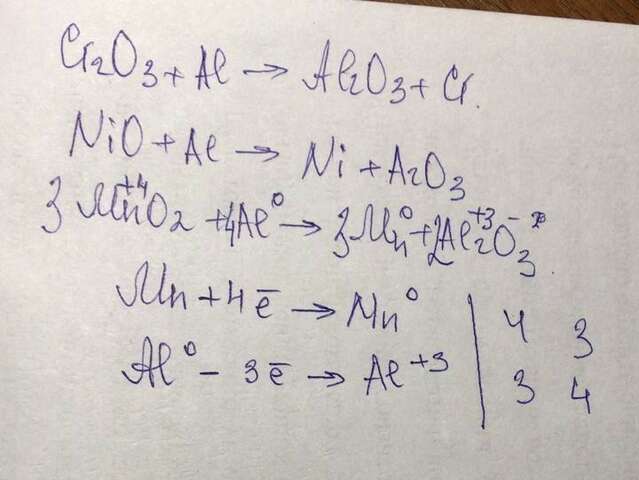 Cr₂O₃ + Al → Al₂O₃ + Cr.
NiO + Al → Ni + A₂O₃
3 Mn⁺⁴O₂ + 4Al⁰ → 3Mn⁰ + 2Al₂⁺³O₃⁻²
Mn + 4ē → Mn⁰ | 4 3
Al⁰ – 3ē → Al⁺³ | 3 4